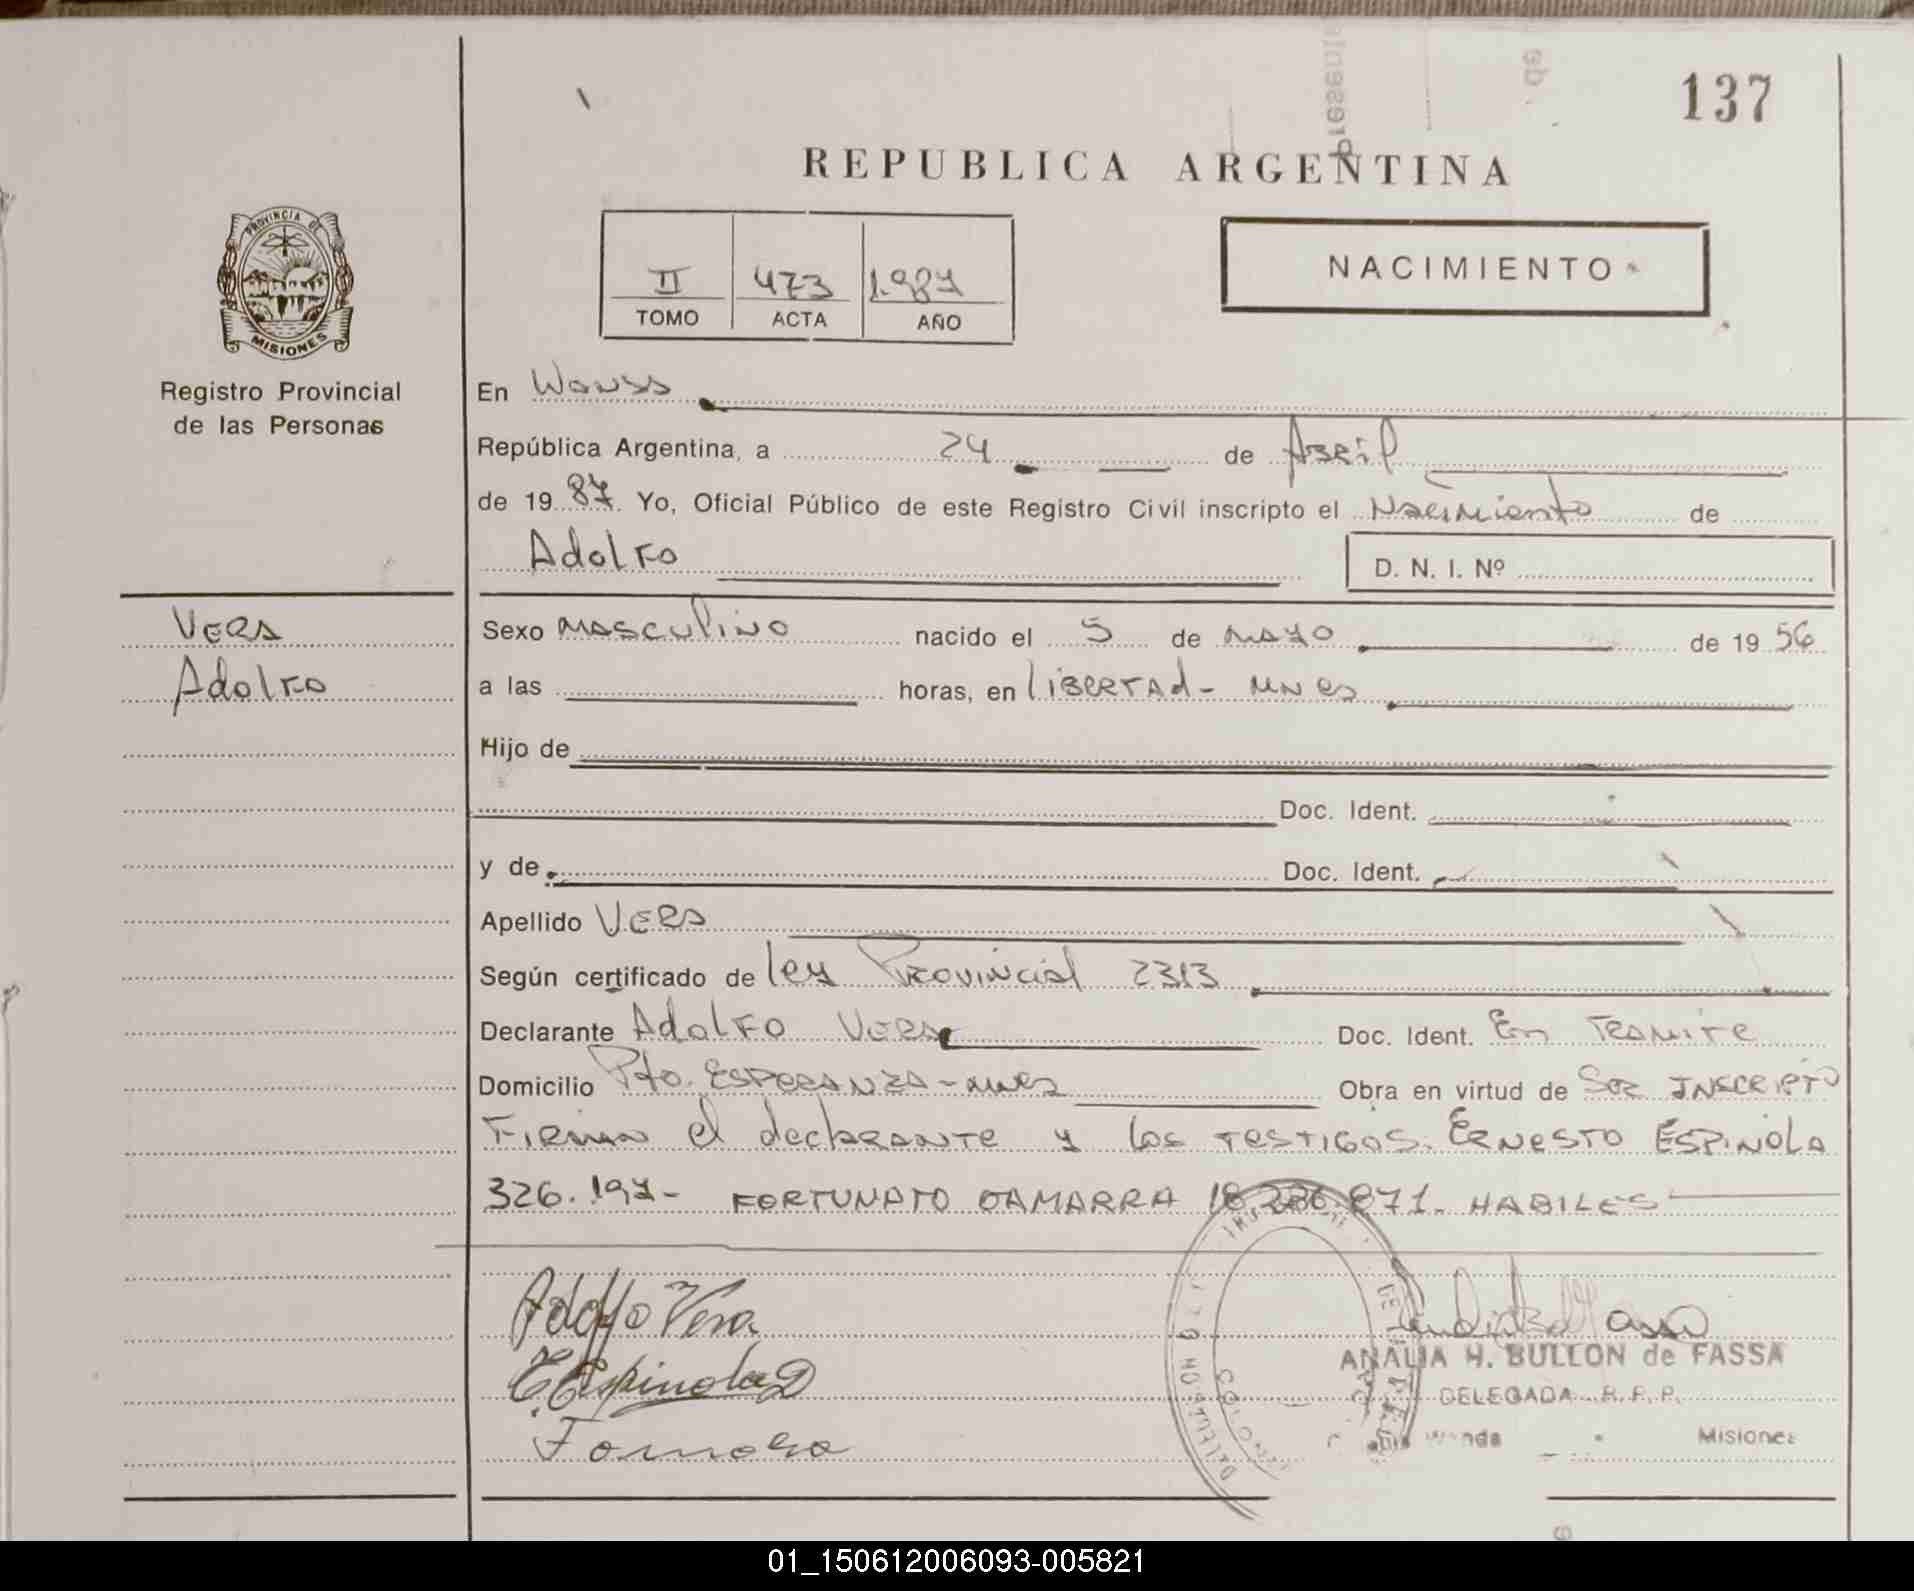 137
REPUBLICA ARGENTINA
PROVINCIA DE
MISIONES
Registro Provincial
de las Personas
II 473 1.987
TOMO ACTA AÑO
NACIMIENTO
En Wanda
República Argentina, a 24 de Abril
de 1987. Yo, Oficial Público de este Registro Civil inscripto el Nacimiento de
Adolfo D. N. I. Nº
Vera
Adolfo
Sexo masculino nacido el 5 de mayo de 1956
a las horas, en Libertad - mnes
Hijo de
Doc. Ident.
y de Doc. Ident.
Apellido Vera
Según certificado de ley Provincial 2313
Declarante Adolfo Vera Doc. Ident. En Tramite
Domicilio Pto. Esperanza - mnes Obra en virtud de Ser Inscripto
Firman el declarante y los testigos. Ernesto Espinola
326.197- FORTUNATO GAMARRA 18.286.871. HABILES
Adolfo Vera
E Espinola
ANALIA H. BULLON de FASSA
DELEGADA R. P. P.
Wanda Misiones
01_150612006093-005821